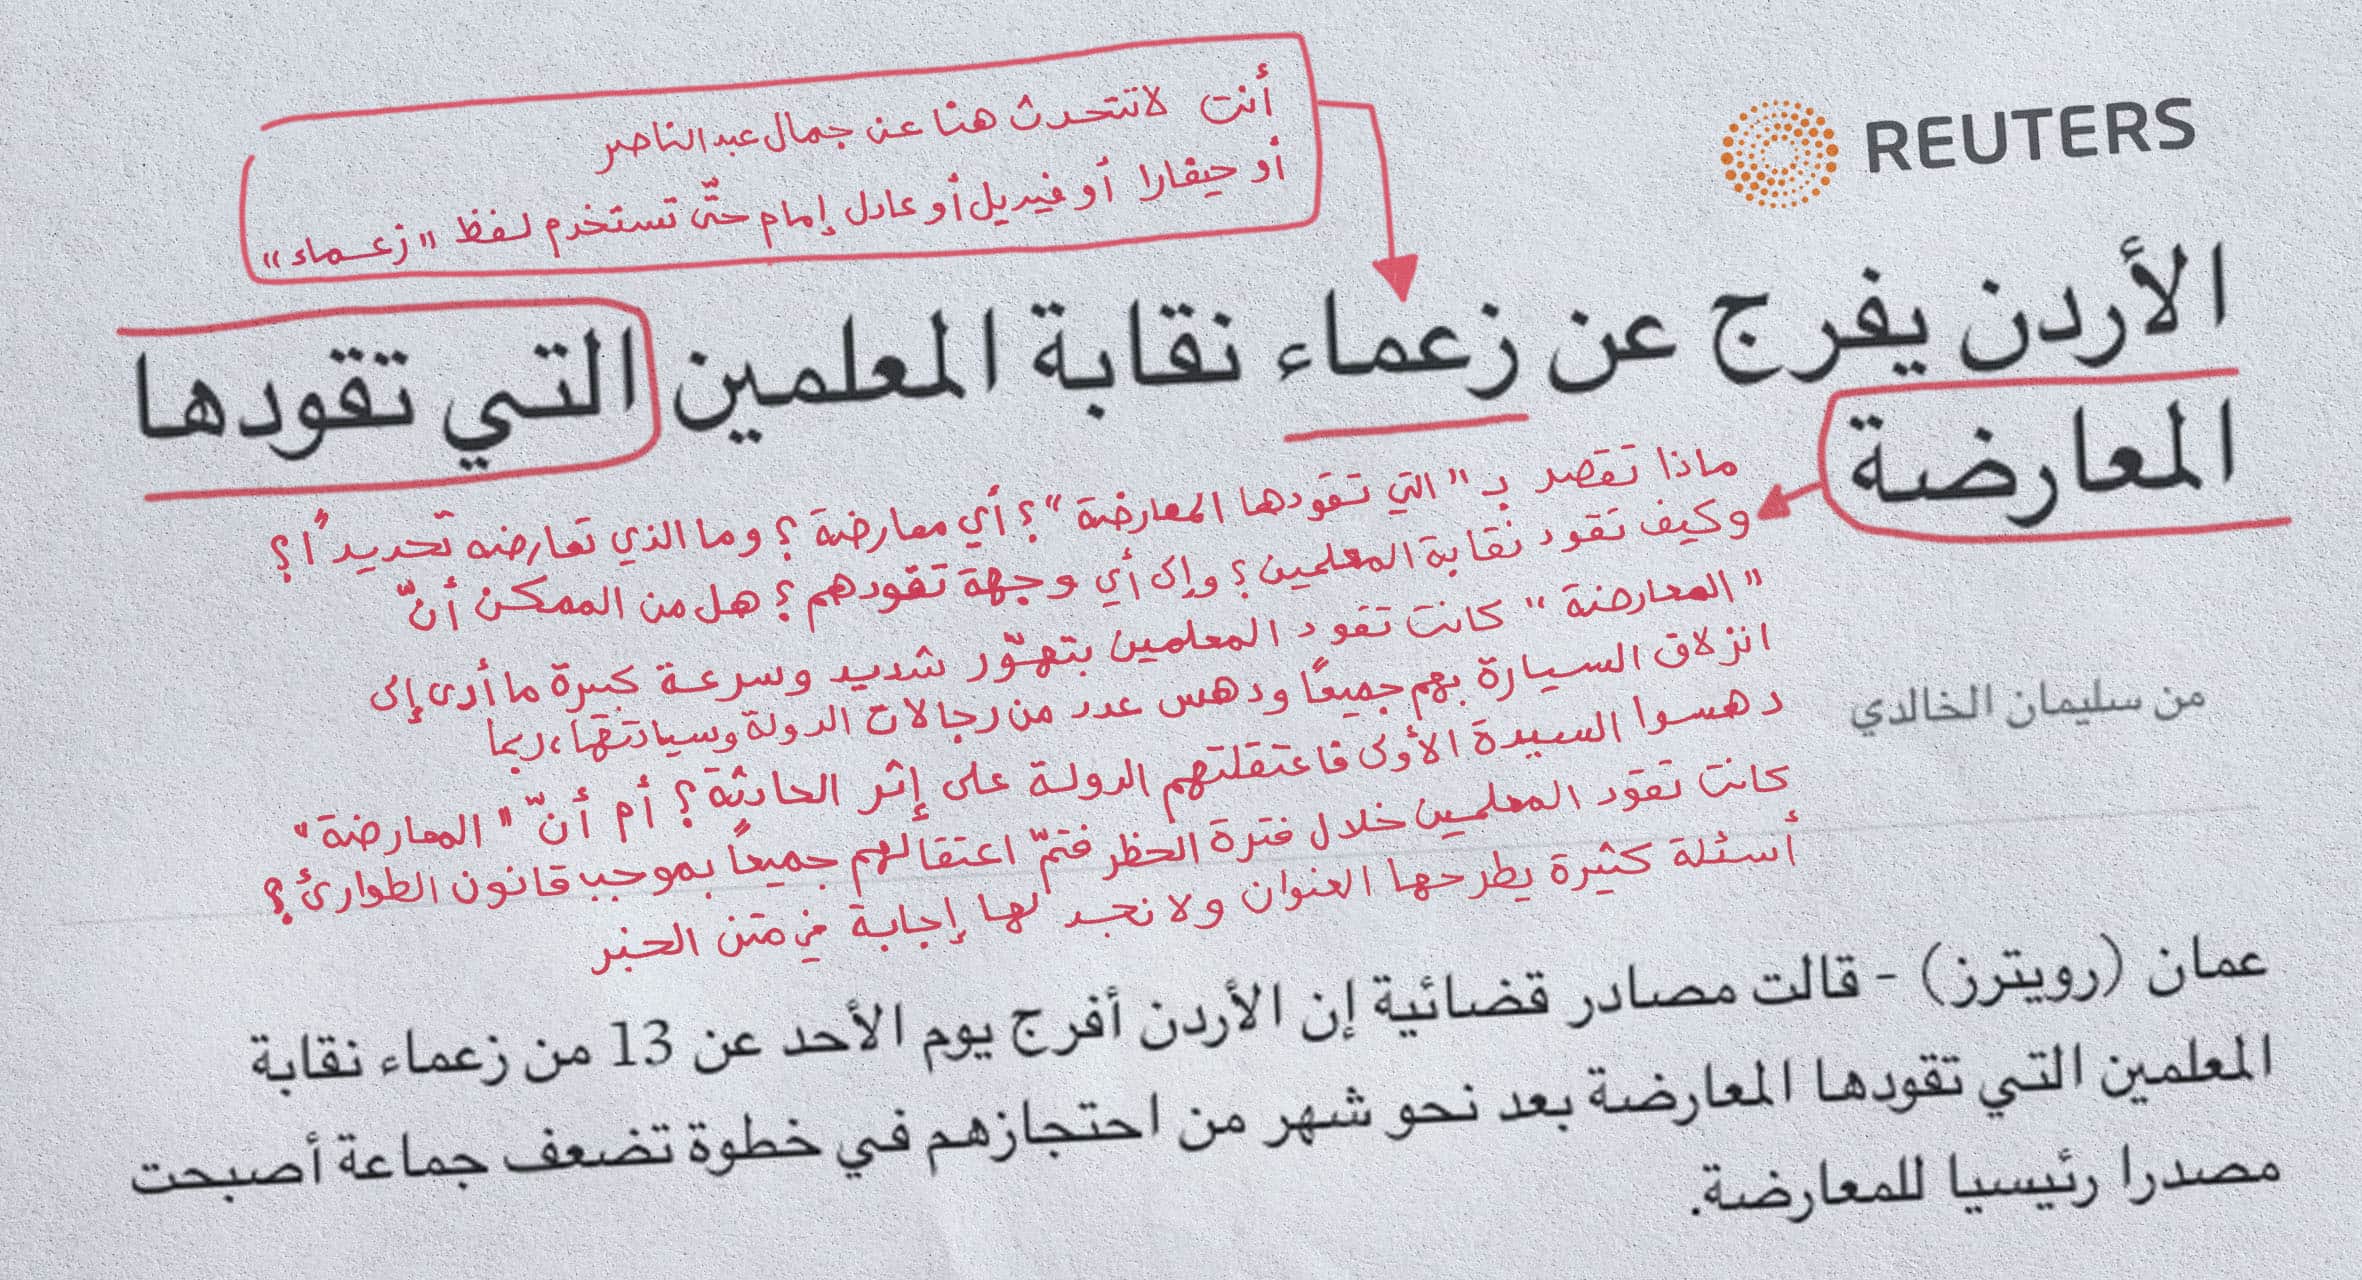 أنت لا تتحدث هنا عن جمال عبد الناصر
أو جيفارا أو فيديل أو عادل إمام حتّى تستخدم لفظ "زعماء"
REUTERS
الأردن يفرج عن زعماء نقابة المعلمين التي تقودها
المعارضة
ماذا تقصد بـ "التي تقودها المعارضة"؟ أي معارضة؟ وما الذي تعارضه تحديداً؟
وكيف تقود نقابة المعلمين؟ وإلى أي وجهة تقودهم؟ هل من الممكن أنّ
"المعارضة" كانت تقود المعلمين بتهوّر شديد وسرعة كبيرة ما أدى إلى
انزلاق السيارة بهم جميعًا ودهس عدد من رجالات الدولة وسيادتها، ربما
دهسوا السيدة الأولى فاعتقلتهم الدولة على إثر الحادثة؟ أم أنّ "المعارضة"
كانت تقود المعلمين خلال فترة الحظر فتمّ اعتقالهم جميعاً بموجب قانون الطوارئ؟
أسئلة كثيرة يطرحها العنوان ولا نجد لها إجابة في متن الخبر
من سليمان الخالدي
عمان (رويترز) - قالت مصادر قضائية إن الأردن أفرج يوم الأحد عن 13 من زعماء نقابة
المعلمين التي تقودها المعارضة بعد نحو شهر من احتجازهم في خطوة تضعف جماعة أصبحت
مصدرا رئيسيا للمعارضة.